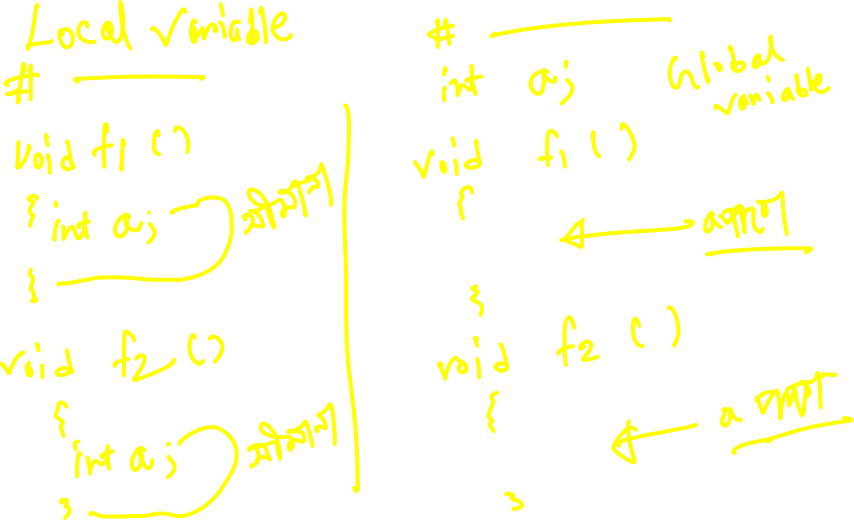 Local Variable
#
void f1 ()
{ int a;
}
void f2 ()
{
int a;
}
#
int a; Global
variable
void f1 ()
{
}
void f2 ()
{
a
}